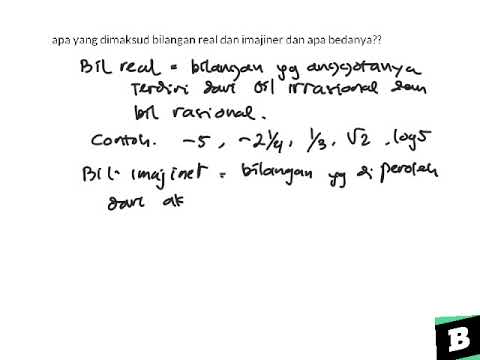 apa yang dimaksud bilangan real dan imajiner dan apa bedanya??
Bil real = bilangan yg anggotanya
terdiri dari bil irrasional dan
bil rasional.
Contoh. -5, -2 1/4, 1/3, √2, log5
Bil. imajiner = bilangan yg di peroleh
dari ak
B